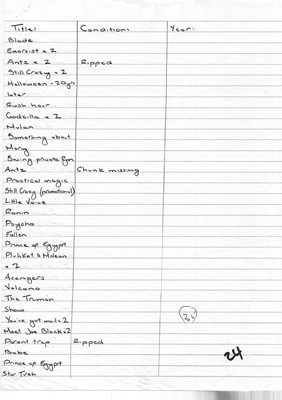 Title: Condition: Year:
Blade
Exorsist x 2
Antz x 2 Ripped
Still Crazy x 2
Halloween - 20yrs
later
Rush hour
Godzilla x 2
Mulan
Something about
Mary
Saving private Ryan
Antz Chunk missing
Practical magic
Still Crazy (promotional)
Little Voice
Ronin
Psycho
Fallen
Prince of Egypt
Plunket & Mclean
x 2
Avengers
Volcano
The Truman
Show
You've got mail x 2
Meet Joe Black x 2
Parent trap Ripped
Babe
24
Prince of Egypt
Star Trek